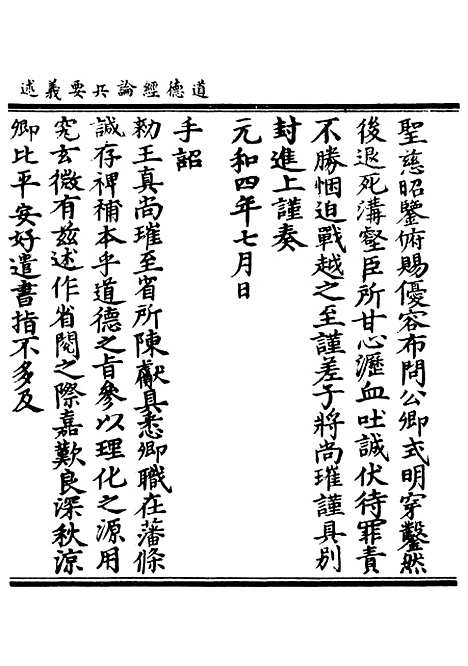 道德經論兵要義述
聖慈昭鑒俯賜優容布問公卿式明穿鑿然
後退死溝壑臣所甘心瀝血吐誠伏待罪責
不勝悃迫戰越之至謹差子將尚璀謹具別
封進上謹奏
元和四年七月日
手詔
勑王真尚璀至省所陳獻具悉卿職在藩條
誠存裨補本乎道德之旨參以理化之源用
究玄微有茲述作省閱之際嘉歎良深秋涼
卿比平安好遣書指不多及